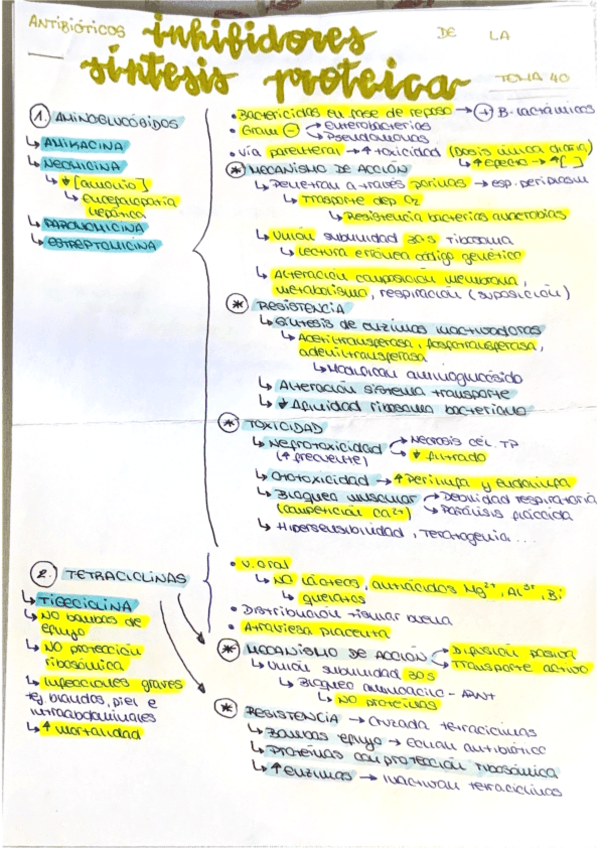 ANTIBIÓTICOS inhibidores DE LA
síntesis proteica TEMA 40
1. AMINOGLUCÓSIDOS
↳ AMIKACINA
↳ NEOMICINA
↳ ↓ [amonio]
↳ encefalopatía
hepática
↳ PAROMOMICINA
↳ ESTREPTOMICINA
• Bactericidas en fase de reposo → (+) B-lactámicos
• Gram (-) → Enterobacterias
→ Pseudomonas
• vía parenteral → ↑ toxicidad (Dosis única diaria)
↳ ↑ efecto → ↑ [ ]
* MECANISMO DE ACCIÓN
↳ Penetran a través porinas → esp. periplasm
↳ Trasporte dep O₂
↳ Resistencia bacterias anaerobias
↳ Unión subunidad 30s ribosoma
↳ Lectura errónea código genético
↳ Alteración composición membrana,
metabolismo, respiración (suposición)
* RESISTENCIA
↳ Síntesis de enzimas inactivadoras
↳ Acetiltransferasa, fosfotransferasa,
adeniltransferasa
↳ Modifican aminoglucósido
↳ Alteración sistema transporte
↳ ↓ Afinidad ribosoma bacteriano
* TOXICIDAD
↳ Nefrotoxicidad → Necrosis cél. TP
(↑ frecuente) → ↓ filtrado
↳ Ototoxicidad → ↑ Perilinfa y endolinfa
↳ Bloqueo muscular → Debilidad respiratoria
(competición Ca²⁺) → Parálisis fláccida
↳ Hipersensibilidad, Teratogenia...
2. TETRACICLINAS
↳ TIGECICLINA
↳ NO bombas de
eflujo
↳ NO protección
ribosómica
↳ Infecciones graves
tej blandos, piel e
intraabdominales
↳ ↑ mortalidad
• V. oral
↳ NO lácteos, antiácidos Mg²⁺, Al³⁺, Bi
↳ quelatos
• Distribución tisular buena
• Atraviesa placenta
* MECANISMO DE ACCIÓN → Difusión pasiva
→ Transporte activo
↳ Unión subunidad 30s
↳ Bloqueo aminoacilo-ARNT
↳ NO proteínas
* RESISTENCIA → Cruzada tetraciclinas
↳ Bombas eflujo → Echan antibiótico
↳ Proteínas con protección ribosómica
↳ ↑ Enzimas → inactivan tetraciclinas